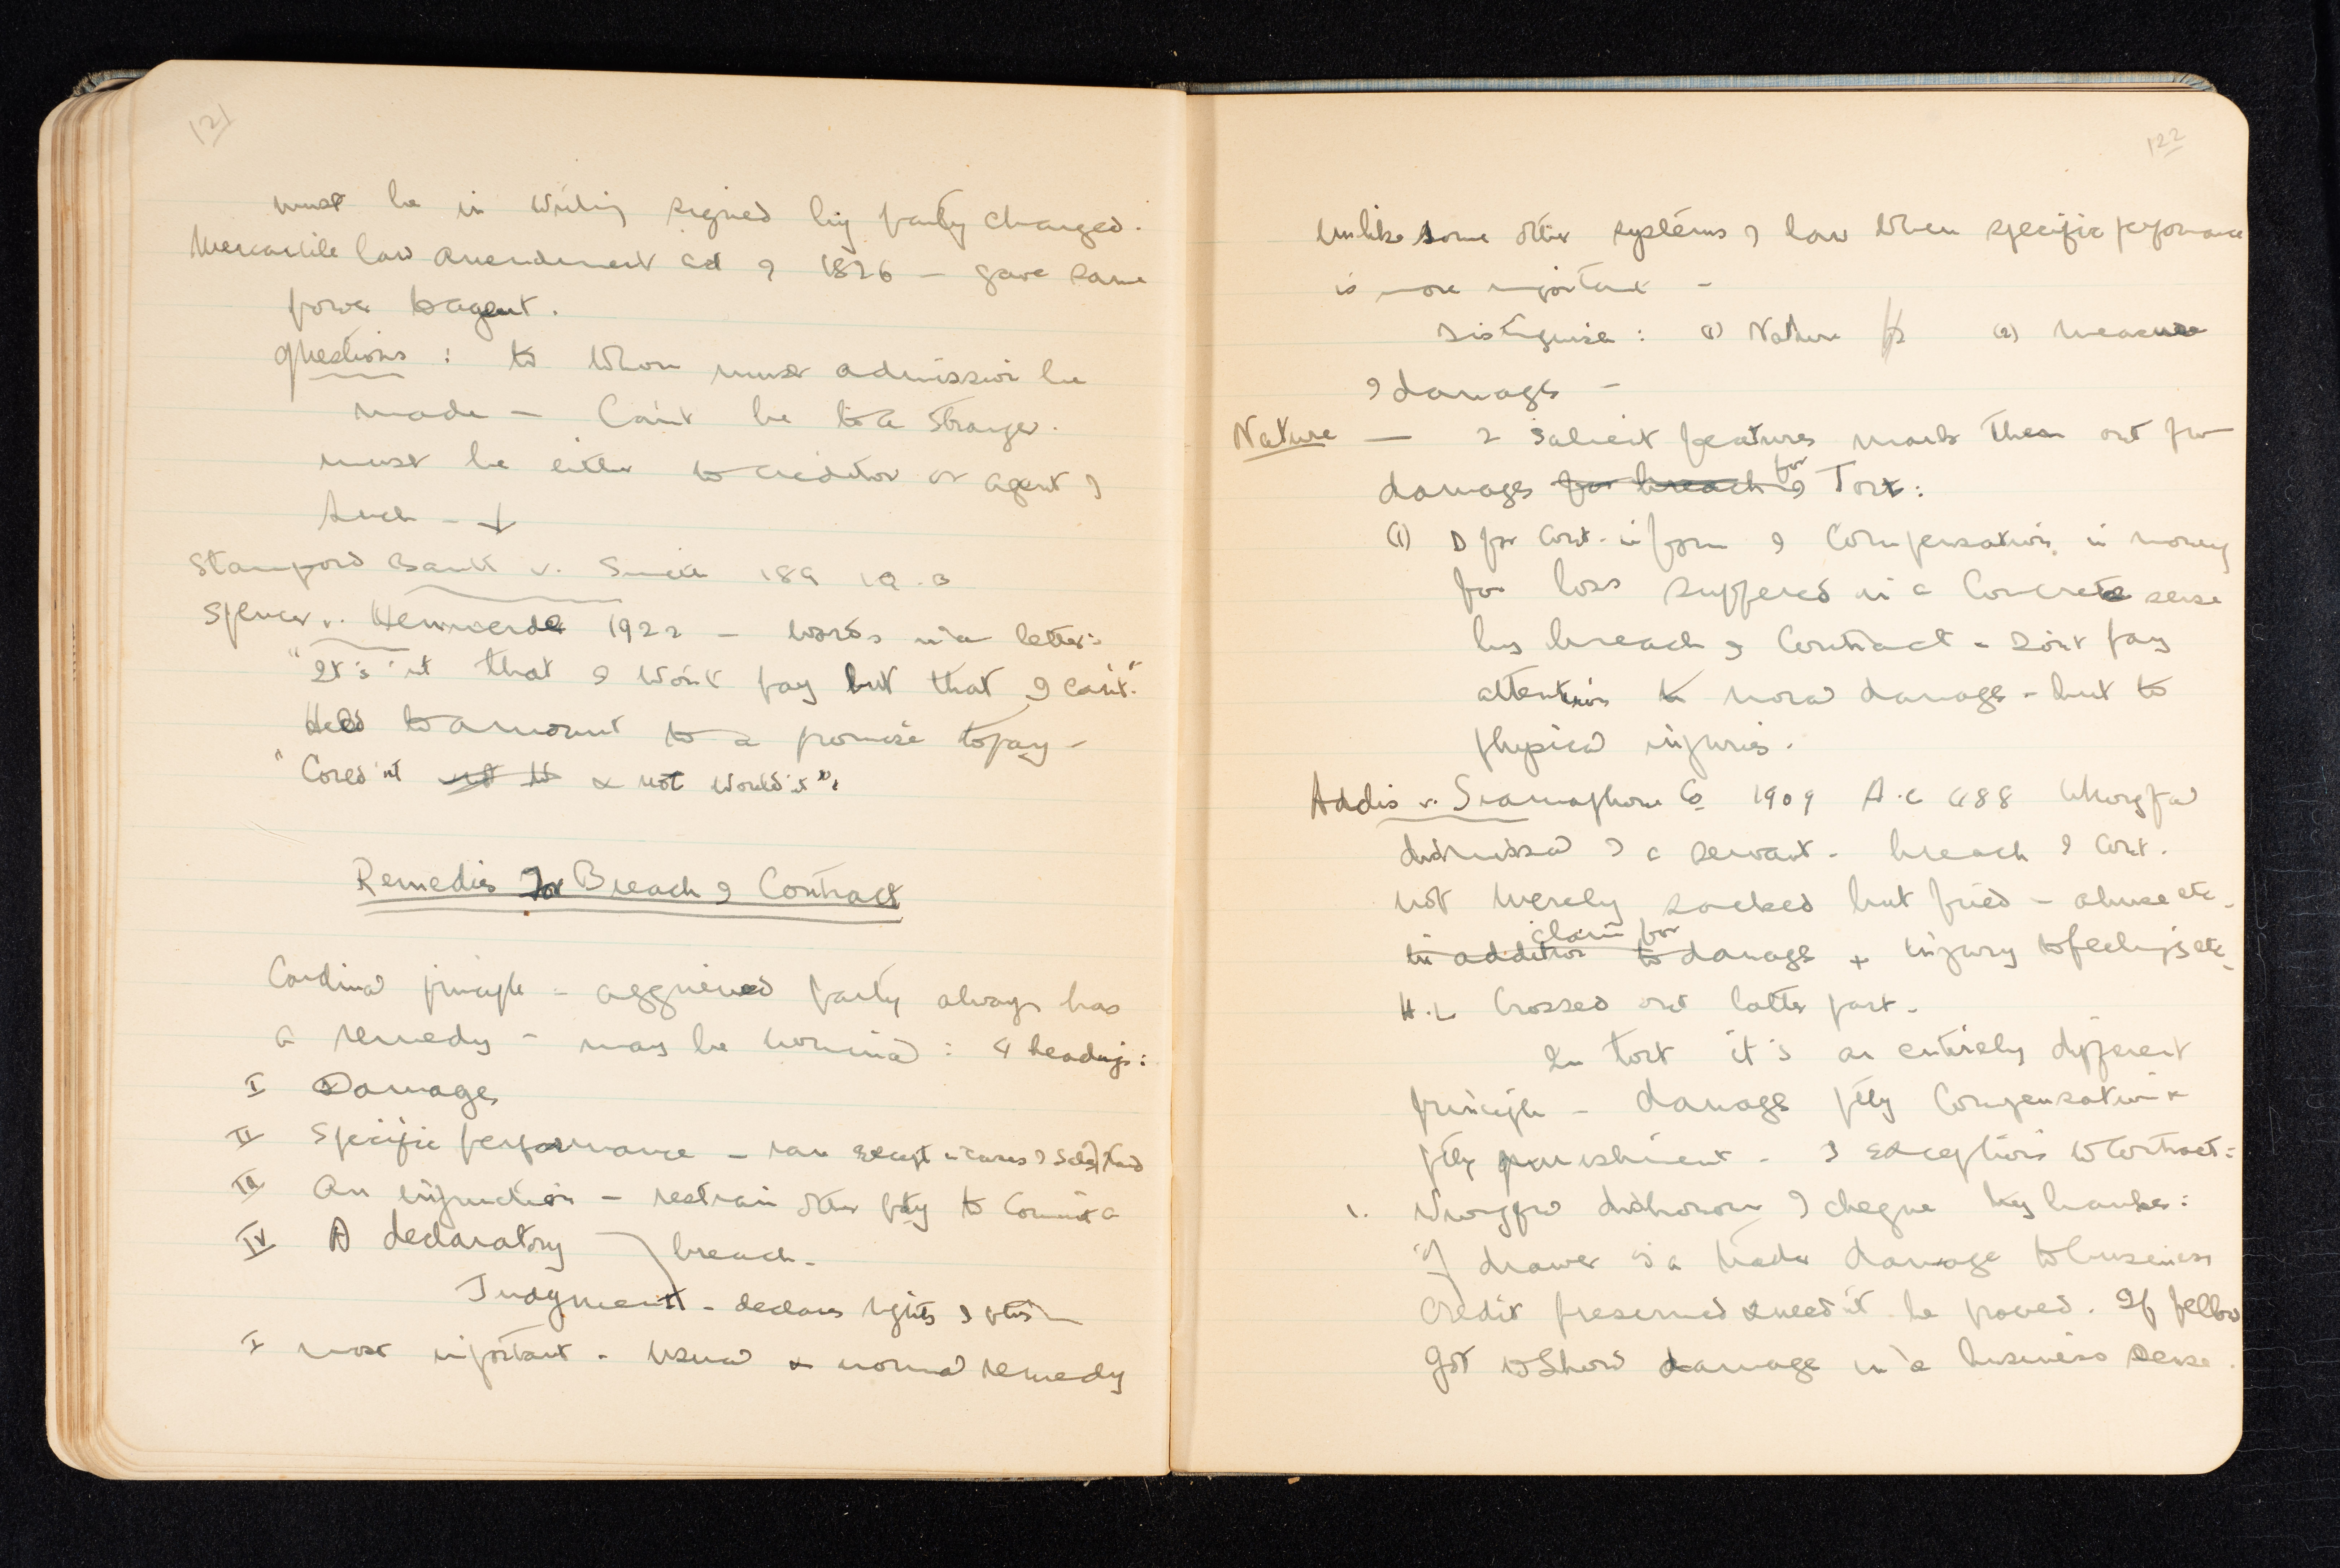 121
must be in writing signed by party charged.
Mercantile law amendment act of 1826 – gave same
power to agent.
Questions : to whom must admission be
made – Can't be to a stranger.
must be either to creditor or agent of
such – ↓
Stamford Bank v. Smith 189 1 Q.B
Spencer v. Hemmerde 1922 – words in a letter:
"It's n't that I won't pay but that I can't."
Held to amount to a promise to pay –
"Could n't not & not would n't".
Remedies For Breach of Contract
Cardinal principle – aggrieved party always has
a remedy – may be nominal : 4 headings:
I Damages
II Specific performance – rare except in cases of sale of land
III An injunction – restrain other pty to commit a
IV A declaratory breach.
Judgment – declares rights of pties
I most important – usual & normal remedy
122
Unlike some other systems of law when specific performance
is more important –
Distinguish : (1) Nature (2) measure
of damages –
Nature — 2 salient features mark them out from
damages for breach of for Tort:
(1) D for Cont. in form of Compensation in money
for loss suffered in a Concrete sense
by breach of Contract – don't pay
attention to moral damage – but to
physical injuries.
Addis v. Gramophone Co 1909 A.C 488 Wrongful
dismissal of a servant – breach of Cont.
not merely sacked but fired – abuse etc.
in addition claim for to damage + injury to feelings etc.
H.L Crossed out latter part.
In tort it's an entirely different
principle – damage ptly Compensation &
ptly punishment – 3 exceptions to Contract:
1. Wrongful dishonour of cheque by banker:
If drawer is a trader damage to business
Credit presumed & need n't be proved. If fellow
got to show damage in a business sense.